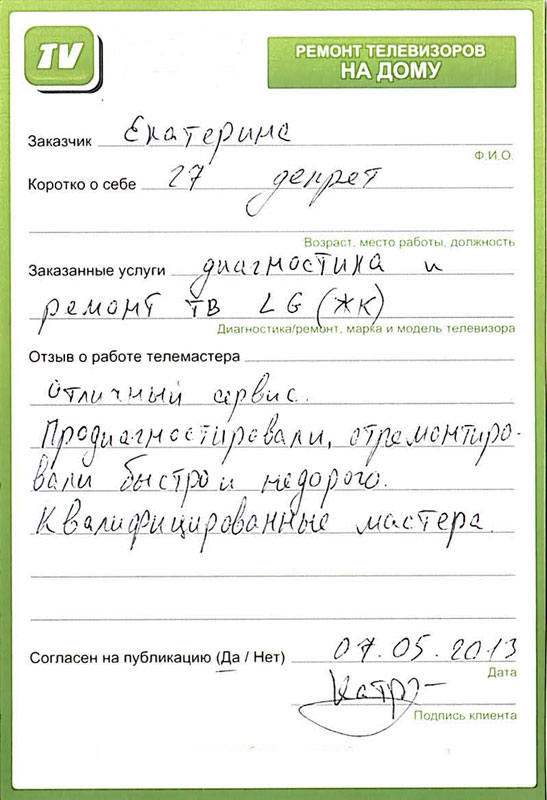 TV
РЕМОНТ ТЕЛЕВИЗОРОВ
НА ДОМУ
Заказчик Екатерина
Ф.И.О.
Коротко о себе 27 декрет
Возраст, место работы, должность
Заказанные услуги диагностика и
ремонт ТВ LG (ЖК)
Диагностика/ремонт, марка и модель телевизора
Отзыв о работе телемастера
Отличный сервис.
Продиагностировали, отремонтиро-
вали быстро и недорого.
Квалифицированные мастера.
Согласен на публикацию (Да / Нет) 07.05.2013
Дата
Подпись клиента